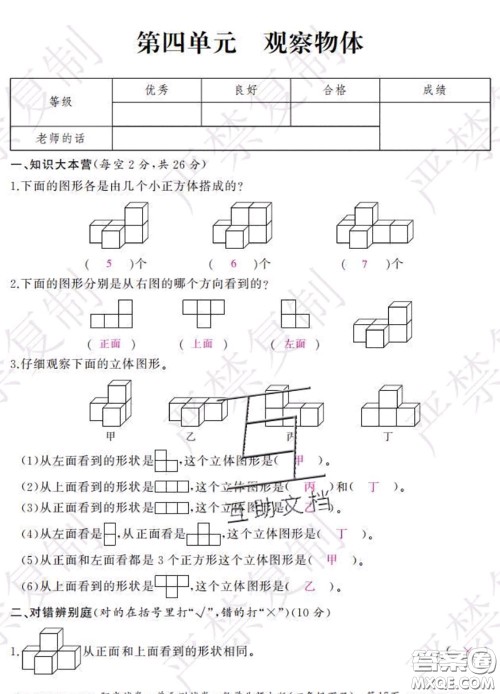 第四单元 观察物体
等级 优秀 良好 合格 成绩
老师的话
一、知识大本营(每空2分,共26分)
1.下面的图形各是由几个小正方体搭成的?
( 5 )个 ( 6 )个 ( 7 )个
2.下面的图形分别是从右图的哪个方向看到的?
(正面) (上面) (左面)
3.仔细观察下面的立体图形。
甲 乙 丙 丁
(1)从左面看到的形状是,这个立体图形是( 甲 )。
(2)从上面看到的形状是,这个立体图形是( 丙 )和( 丁 )。
(3)从上面看到的形状是,这个立体图形是( 乙 )。
(4)从左面看是,从正面看是,这个立体图形是( 丁 )。
(5)从正面和左面看都是3个正方形这个立体图形是( 甲 )。
(6)从上面看到的形状是,这个立体图形是( 乙 )。
二、对错辨别庭(对的在括号里打“√”,错的打“×”)(10分)
1.从正面和上面看到的形状相同。
严禁复制
互助文档
答案圈
MXQE.COM